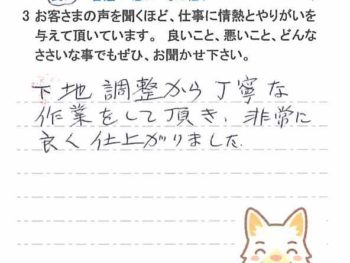 3 お客さまの声を聞くほど、仕事に情熱とやりがいを
与えて頂いています。 良いこと、悪いこと、どんな
ささいな事でもぜひ、お聞かせ下さい。
下地調整から丁寧な
作業をして頂き、非常に
良く仕上がりました.